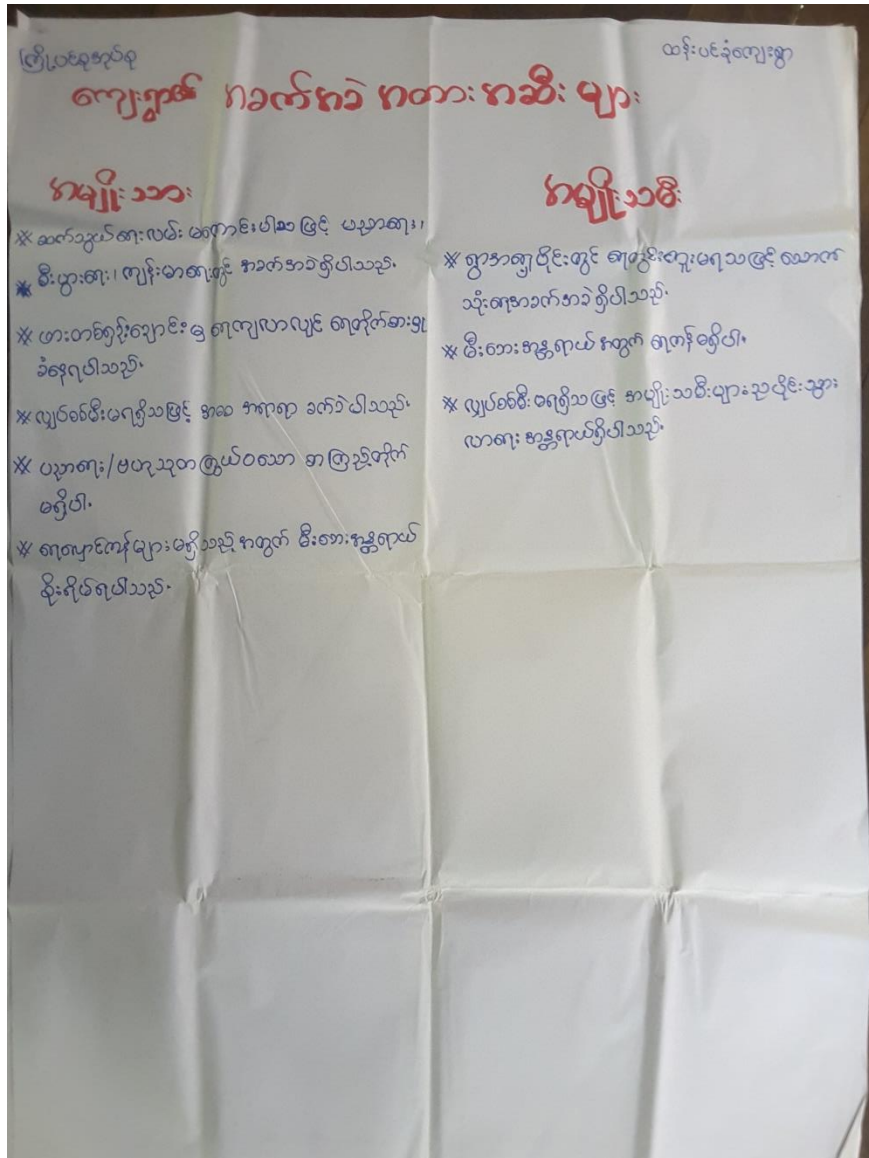 ကြို့ပင်စုအုပ်စု
ထန်းပင်ခုံကျေးရွာ
ကျေးရွာ၏ အခက်အခဲ အတားအဆီး များ
အမျိုးသား
※ ဆက်သွယ်ရေးလမ်း မကောင်းပါသဖြင့် ပညာရေး၊
※ စီးပွားရေး၊ ကျန်းမာရေးတွင် အခက်အခဲရှိပါသည်။
※ ဖားတစ်ရှဉ့်ချောင်းမှ ရေကျလာလျှင် ရေတိုက်စားမှု
ခံနေရပါသည်။
※ လျှပ်စစ်မီးမရရှိသဖြင့် အဘ အရာရာ ခက်ခဲပါသည်။
※ ပညာရေး/ဗဟုသုတကြွယ်ဝသော စာကြည့်တိုက်
မရှိပါ။
※ ရေလှောင်ကန်များမရှိသည့်အတွက် မီးဘေးအန္တရာယ်
စိုးရိမ်ရပါသည်။
အမျိုးသမီး
※ ရွာအရှေ့ပိုင်းတွင် ရေတွင်းတူးမရသဖြင့် သောက်
သုံးရေအခက်အခဲရှိပါသည်။
※ မီးဘေးအန္တရာယ်အတွက် ရေကန်မရှိပါ။
※ လျှပ်စစ်မီးမရရှိသဖြင့် အမျိုးသမီးများညပိုင်းသွား
လာရေး အန္တရာယ်ရှိပါသည်။